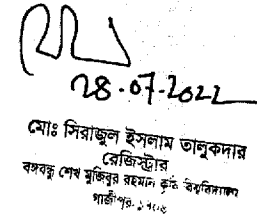 28.07.2022
মোঃ সিরাজুল ইসলাম তালুকদার
রেজিস্ট্রার
বঙ্গবন্ধু শেখ মুজিবুর রহমান কৃষি বিশ্ববিদ্যালয়
গাজীপুর-১৭০৬